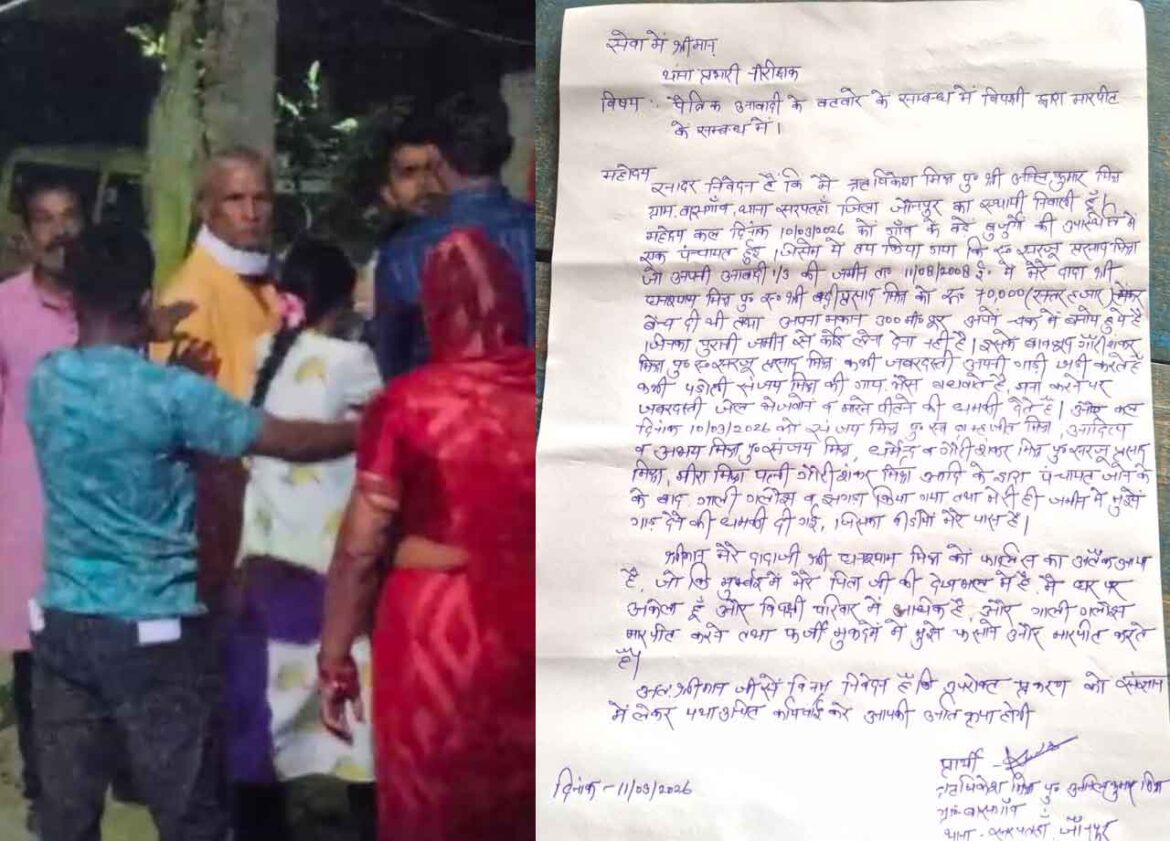 सेवा में श्रीमान
थाना प्रभारी निरीक्षक
विषय :- पैत्रिक आबादी के बटवारे के सम्बन्ध में विपक्षी द्वारा मारपीट
के सम्बन्ध में।
महोदय
सादर निवेदन है कि मै ऋषिकेश मिश्र पु० श्री अनिल कुमार मिश्र
ग्राम थाना सरपतहाँ जिला जौनपुर का स्थायी निवासी हूँ।
महोदय कल दिनांक 10/03/2026 को गाँव के बड़े बुजुर्ग की उपस्थिति में
एक पंचायत हुई। जिसमे मे तय किया गया कि स्व० सरजू प्रसाद मिश्रा
जो अपनी आबादी 1/3 की जमीन ता० 11/08/2008 ई. मे मेरे दादा श्री
घनश्याम मिश्र पु० स्व० श्री बद्रीप्रसाद मिश्र को रू० 70,000 (सत्तर हजार) लेकर
बेच दी थी तथा अपना मकान 300 मी० दूर अपने चक में बनाये हुये है
। जिनका पुरानी जमीन से कोई लेना देना नही है। इसके बावजूद गौरीशंकर
मिश्र पु० स्व० सरजू प्रसाद मिश्र कभी जबरदस्ती अपनी गाड़ी खड़ी करते है
कभी पड़ोसी संजय मिश्र की गाय भैस बधवाते है, मना करने पर
जबरदस्ती जेल भेजवाने व मारने पीटने की धमकी देते है। और कल
दिनांक 10/03/2026 को संजय मिश्र पु० स्व रामजीत मिश्र, आदित्य
व अभय मिश्र पु० संजय मिश्र, धर्मेन्द्र व गौरीशंकर मिश्र पु० सरजू प्रसाद
मिश्रा, मीरा मिश्रा पत्नी गौरीशंकर मिश्रा आदि के द्वारा पंचायत जाने के
के बाद गाली गलौझ व झगडा किया गया तथा मेरी ही जमीन मे मुझे
गाड़ देने की धमकी दी गई, जिसका वीडियो मेरे पास है।
श्रीमान मेरे दादाजी श्री घनश्याम मिश्र को फालिस का अटैक आया
है, जो कि मुम्बई में मेरे पिता जी की देखभाल मे है, मै घर पर
अकेला हूँ और विपक्षी परिवार में अधिक है, और गाली गलौझ
मारपीट करने तथा फर्जी मुकदमे मे मुझे फसाने और मारपीट करते
है।
अतः श्रीमान जी से विनम्र निवेदन है कि उपरोक्त प्रकरण को संज्ञान
में लेकर यथाउचित कार्यवाई करे आपकी अति कृपा होगी
प्रार्थी -
दिनांक - 11/03/2026
ऋषिकेश मिश्र पु० अनिल कुमार मिश्र
थाना - सरपतहाँ, जौनपुर